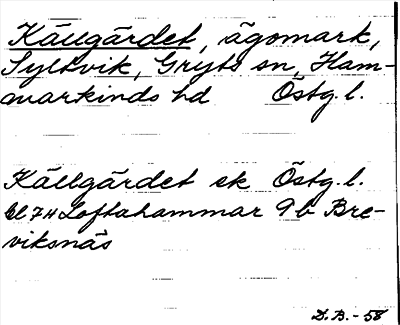 Källgärdet, ägomark,
Syltvik, Gryts sn, Ham-
markinds hd Östg. l.
Källgärdet ek Östg. l.
bl 74 Loftahammar 9b Bre-
viksnäs
D. B. - 58